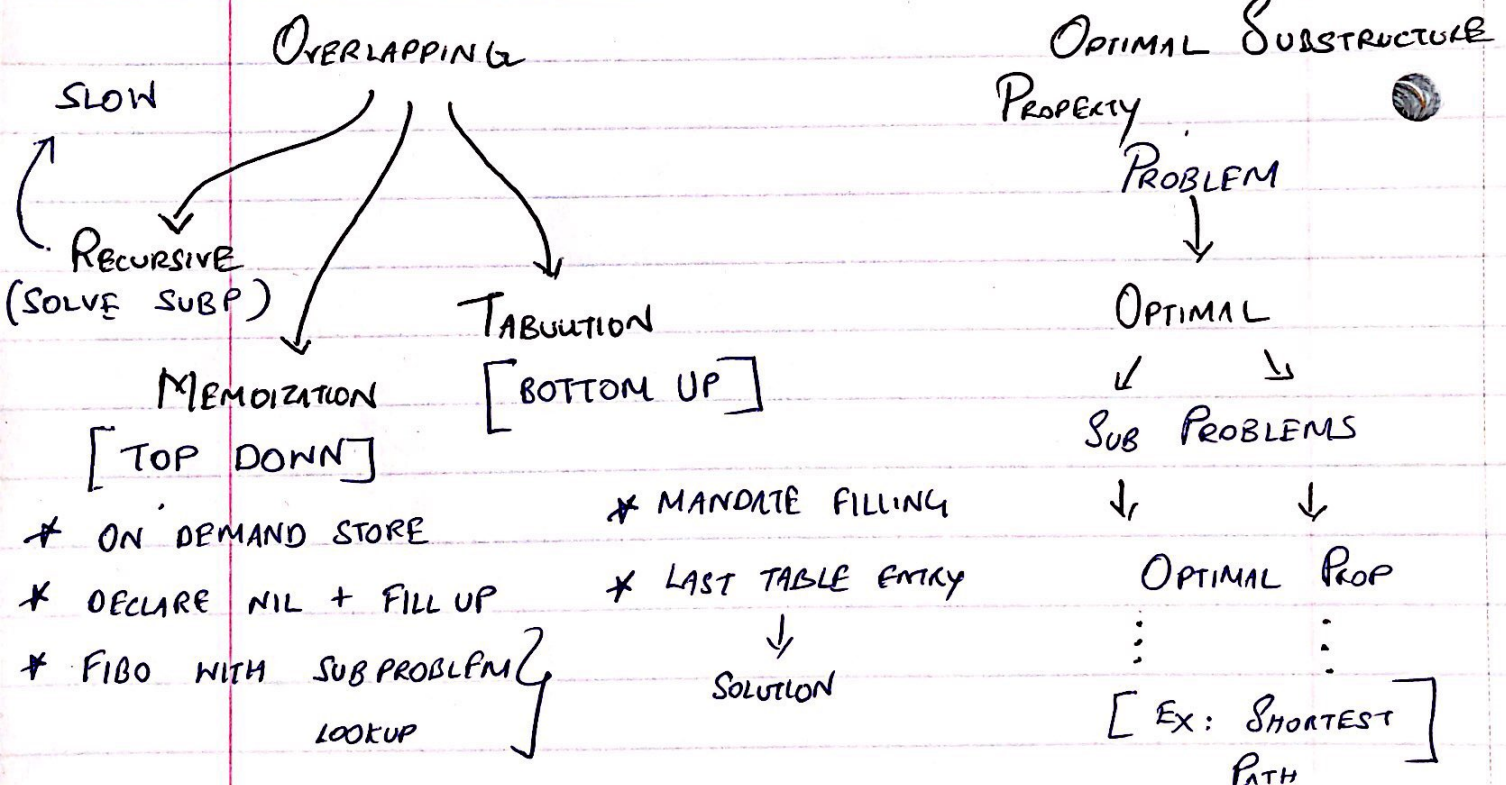 OVERLAPPING
SLOW
RECURSIVE
(SOLVE SUBP)
MEMOIZATION
[TOP DOWN]
* ON DEMAND STORE
* DECLARE NIL + FILL UP
* FIBO WITH SUBPROBLEM
LOOKUP
TABULTION
[BOTTOM UP]
* MANDATE FILLING
* LAST TABLE ENTRY
↓
SOLUTION
OPTIMAL SUBSTRUCTURE
PROPERTY
PROBLEM
↓
OPTIMAL
↙ ↘
SUB PROBLEMS
↓ ↓
OPTIMAL PROP
[EX: SHORTEST
PATH